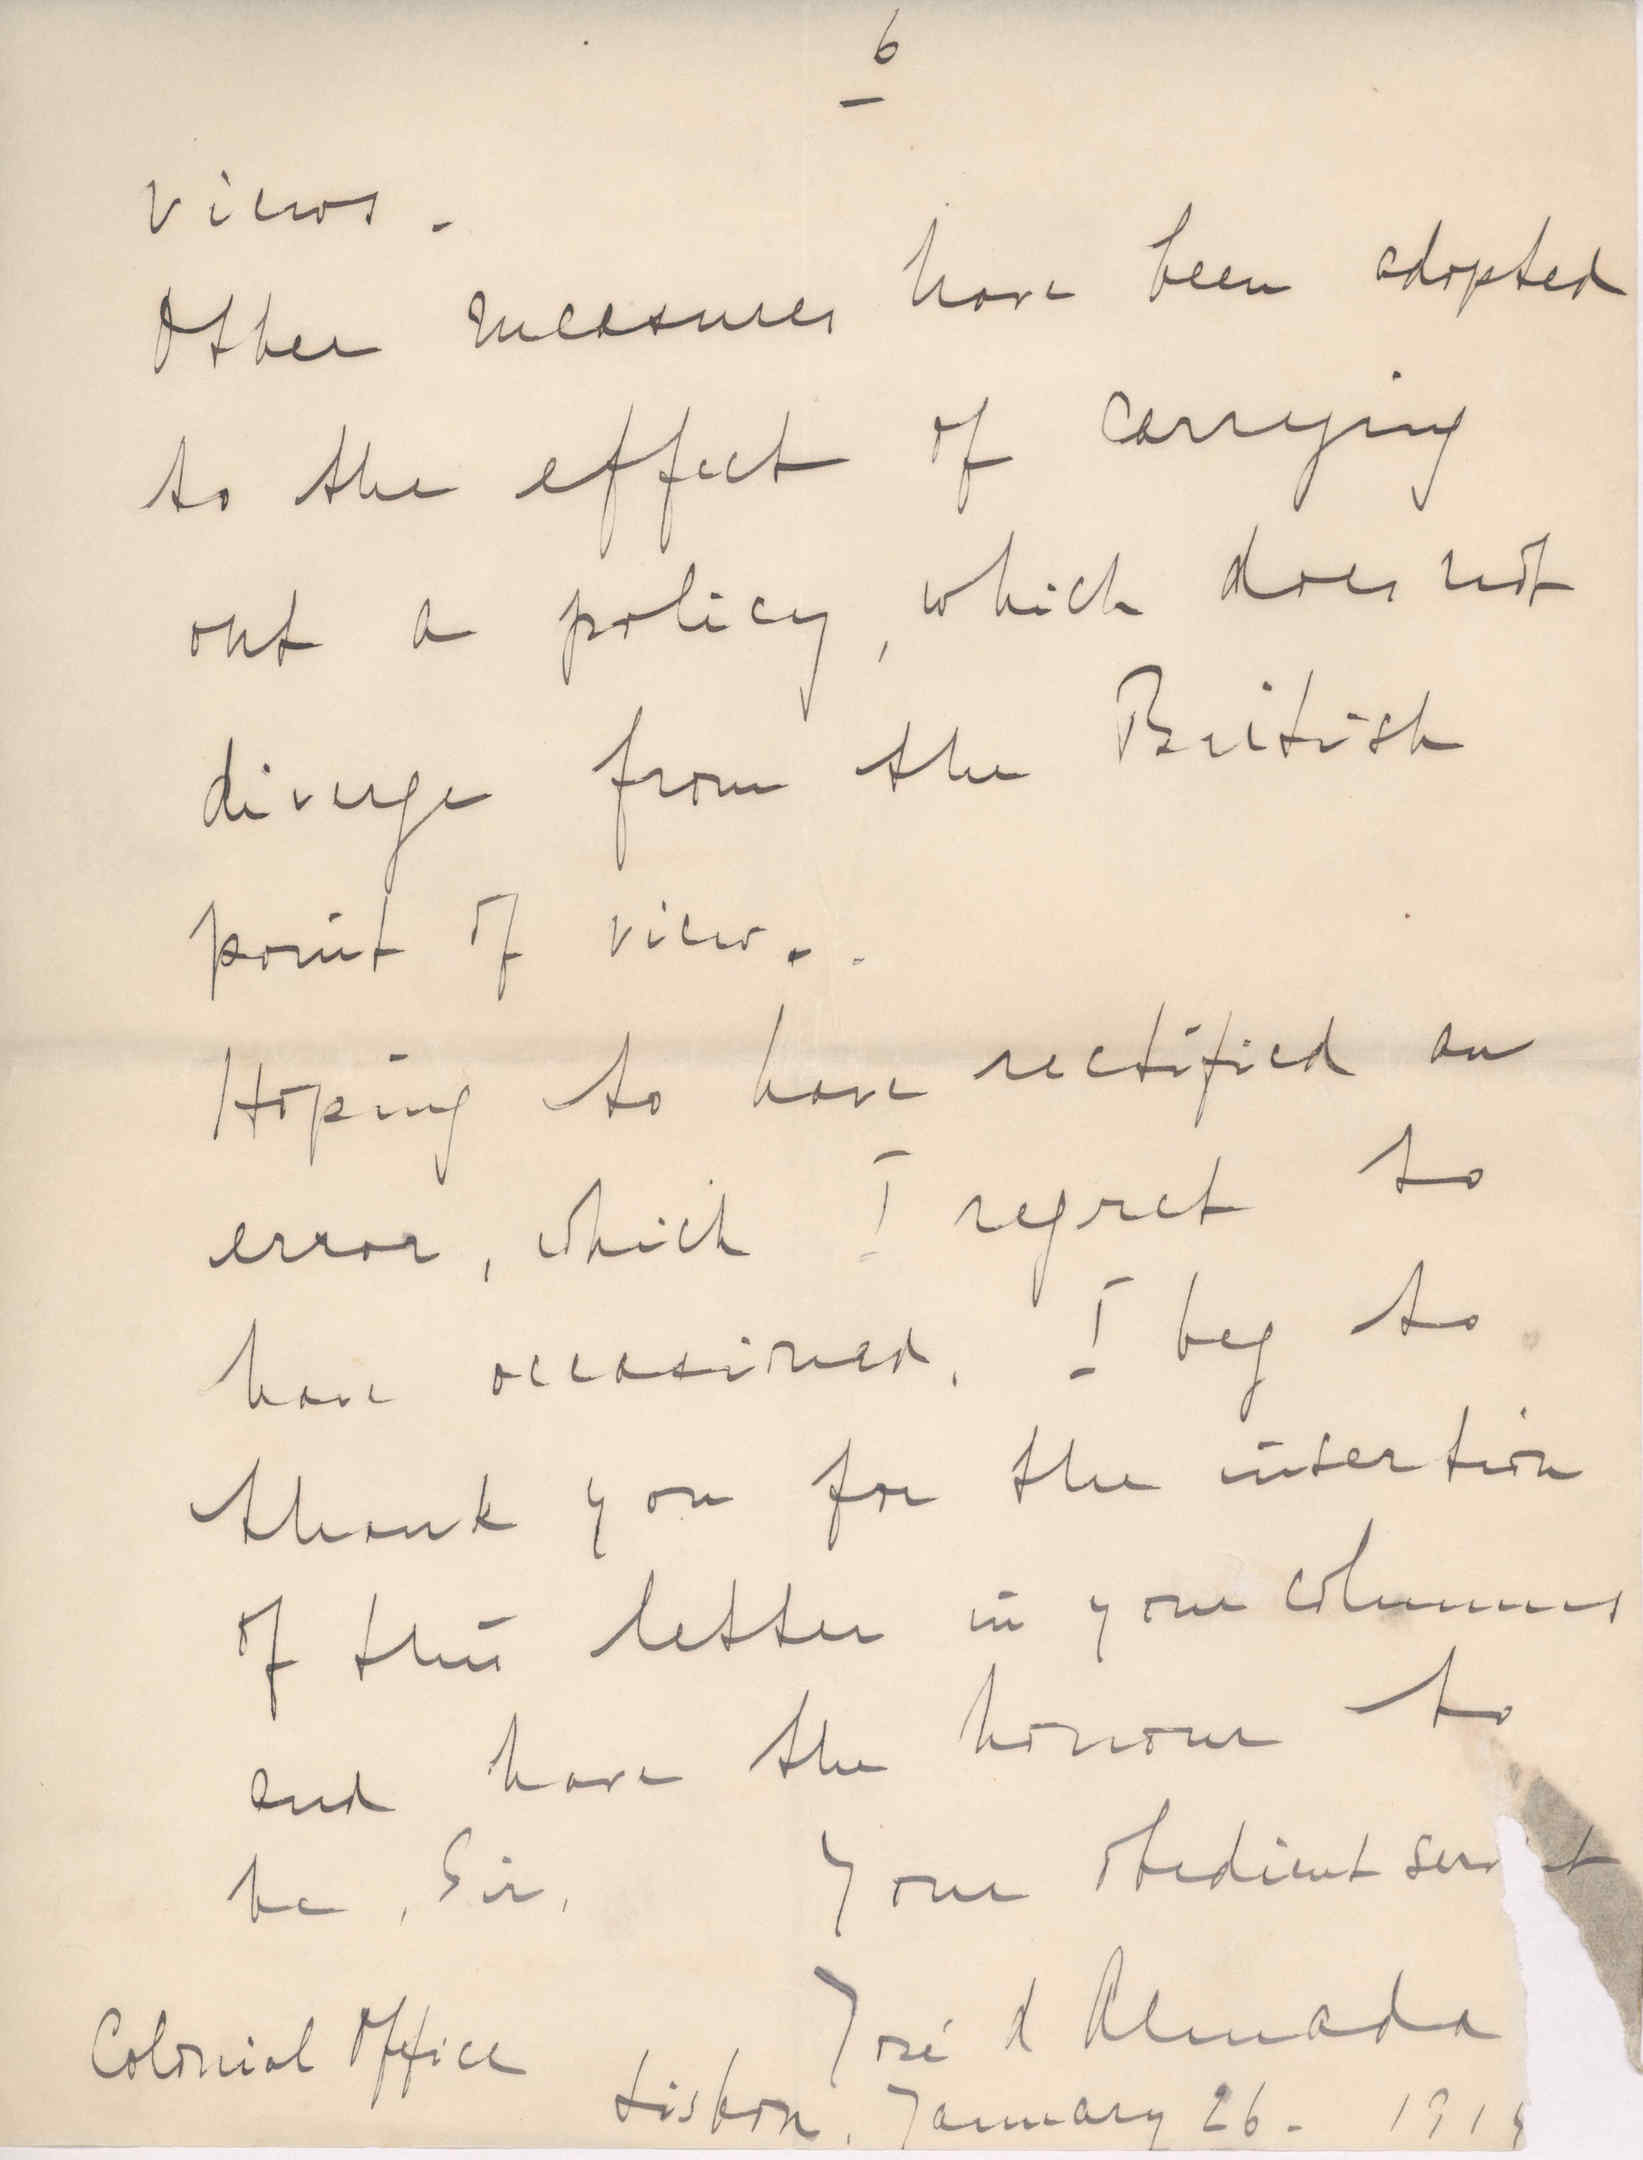 6
views.
Other measures have been adopted
to the effect of carrying
out a policy, which does not
diverge from the British
point of view..
Hoping to have rectified an
error, which I regret to
have occasioned, I beg to
thank you for the insertion
of this letter in your columns
and have the honour to
be, Sir,
Your obedient ser t
José d Almada
Colonial Office
Lisbon, January 26 - 191